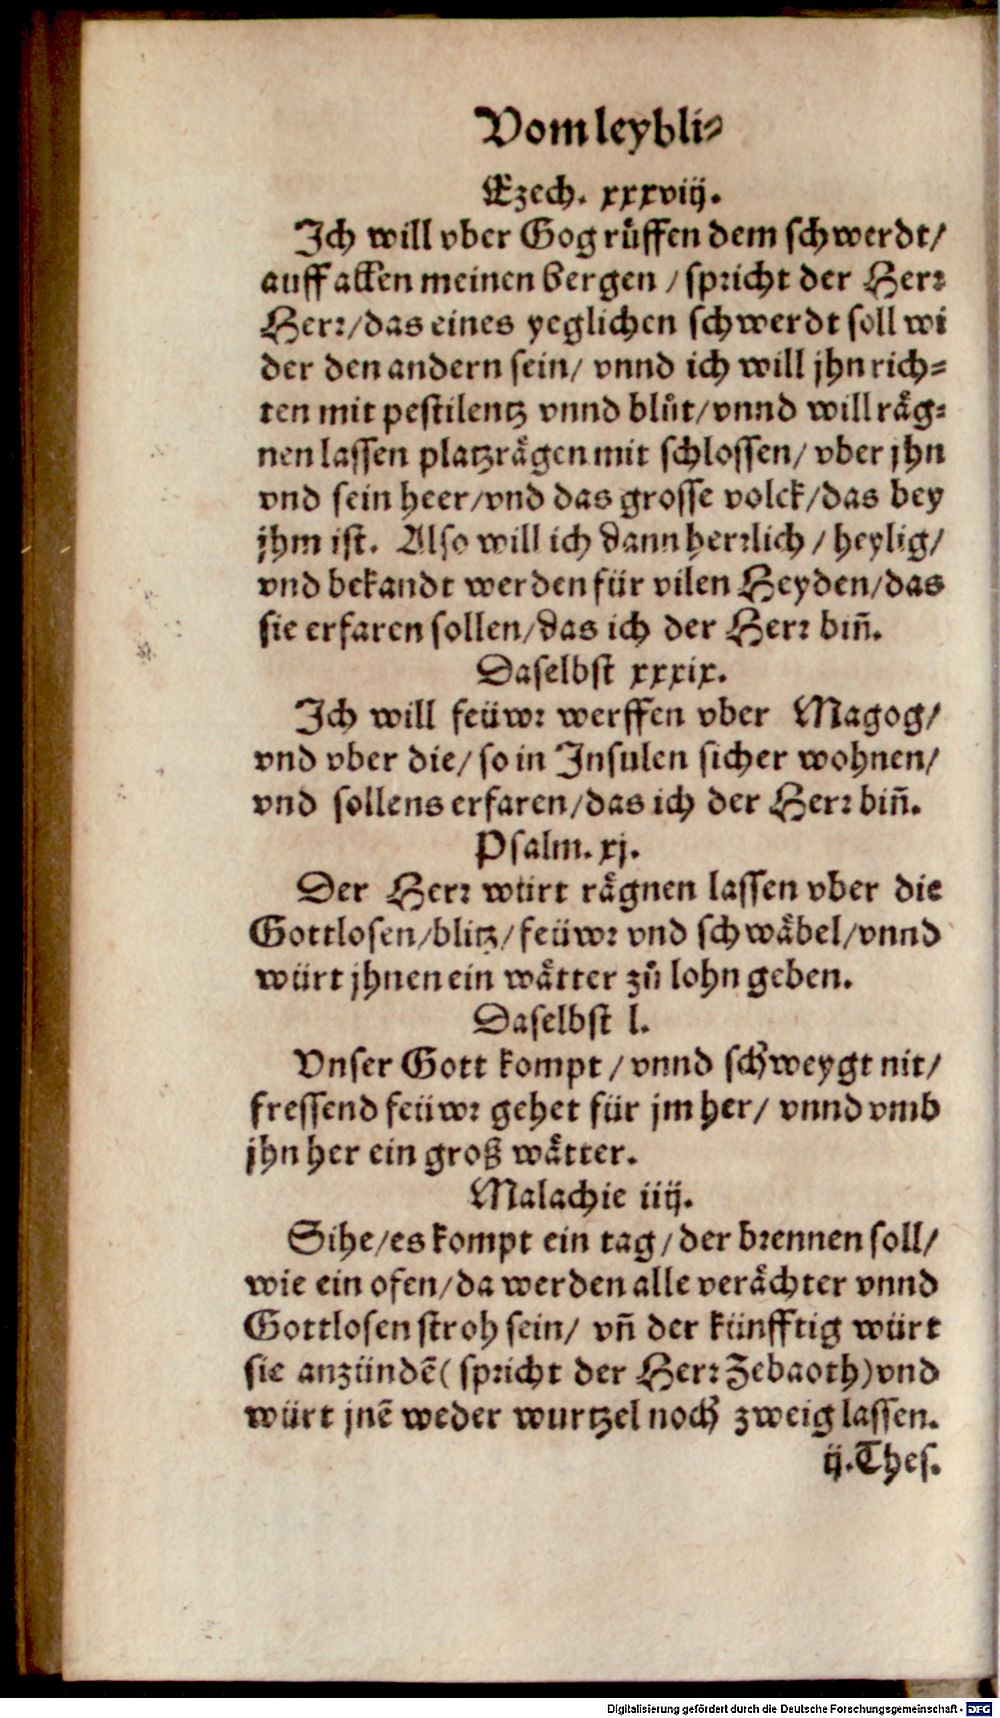 Vom leybli⸗
Ezech. xxxviij.
Ich will vber Gog růffen dem schwerdt/
auff allen meinen bergen / spricht der Herr
Herr/das eines yeglichen schwerdt soll wi
der den andern sein/ vnnd ich will jhn rich⸗
ten mit pestilentz vnnd blůt/vnnd will råg⸗
nen lassen platzrågen mit schlossen/ vber jhn
vnd sein heer/vnd das grosse volck/das bey
jhm ist. Also will ich dann herrlich / heylig/
vnd bekandt werden für vilen Heyden/das
sie erfaren sollen/das ich der Herr biñ.
Daselbst xxxix.
Ich will feüwr werffen vber Magog/
vnd vber die/ so in Insulen sicher wohnen/
vnd sollens erfaren/das ich der Herr biñ.
Psalm. xj.
Der Herr würt rågnen lassen vber die
Gottlosen/blitz/feüwr vnd schwåbel/vnnd
würt jhnen ein wåtter zů lohn geben.
Daselbst l.
Vnser Gott kompt / vnnd schweygt nit/
fressend feüwr gehet für jm her/ vnnd vmb
jhn her ein groß wåtter.
Malachie iiij.
Sihe/es kompt ein tag/der brennen soll/
wie ein ofen/da werden alle veråchter vnnd
Gottlosen stroh sein/ vñ der künfftig würt
sie anzündẽ( spricht der Herr Zebaoth)vnd
würt jnẽ weder wurtzel noch zweig lassen.
ij.Thes.
Digitalisierung gefördert durch die Deutsche Forschungsgemeinschaft - DFG